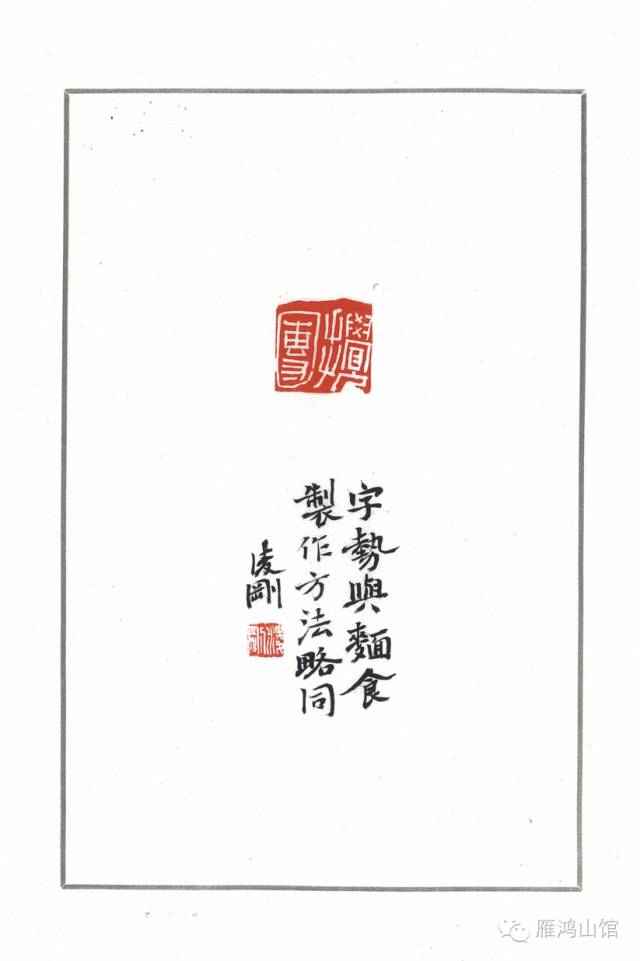 字勢與麵食
製作方法略同
凌剛
雁鸿山馆